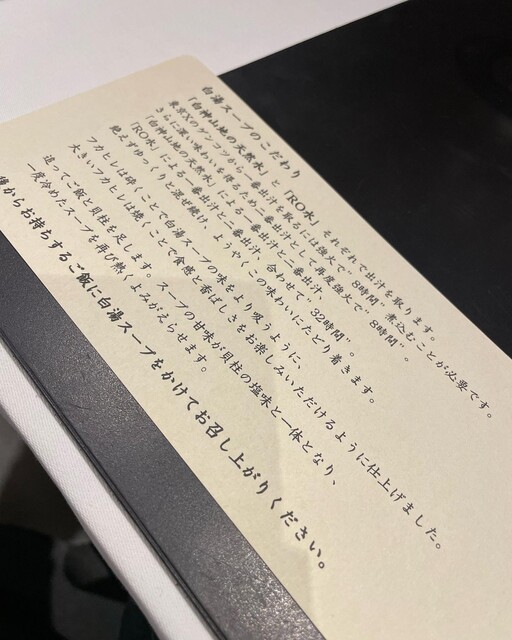 白湯スープのこだわり
「白神山地の天然水」と「RO水」それぞれで出汁を取ります
東京Xのゲンコツから一番出汁を取るには強火で"8時間"煮込むことが必要です。
さらに深い味わいを得るため二番出汁として再度強火で"8時間"。
「白神山地の天然水」による一番出汁と二番出汁、
「RO水」による一番出汁と二番出汁、合わせて"32時間"。
絶えずゆっくりと混ぜ続け、ようやくこの味わいにたどり着きます。
フカヒレは砕くことで白湯スープの味をより吸うように、
大きいフカヒレは焼くことで食感と香ばしさをお楽しみいただけるように仕上げました。
追ってご飯と貝柱を足します。スープの甘味が貝柱の塩味と一体となり、
一度冷めたスープを再び熱くよみがえらせます。
後からお持ちするご飯に白湯スープをかけてお召し上がりください。